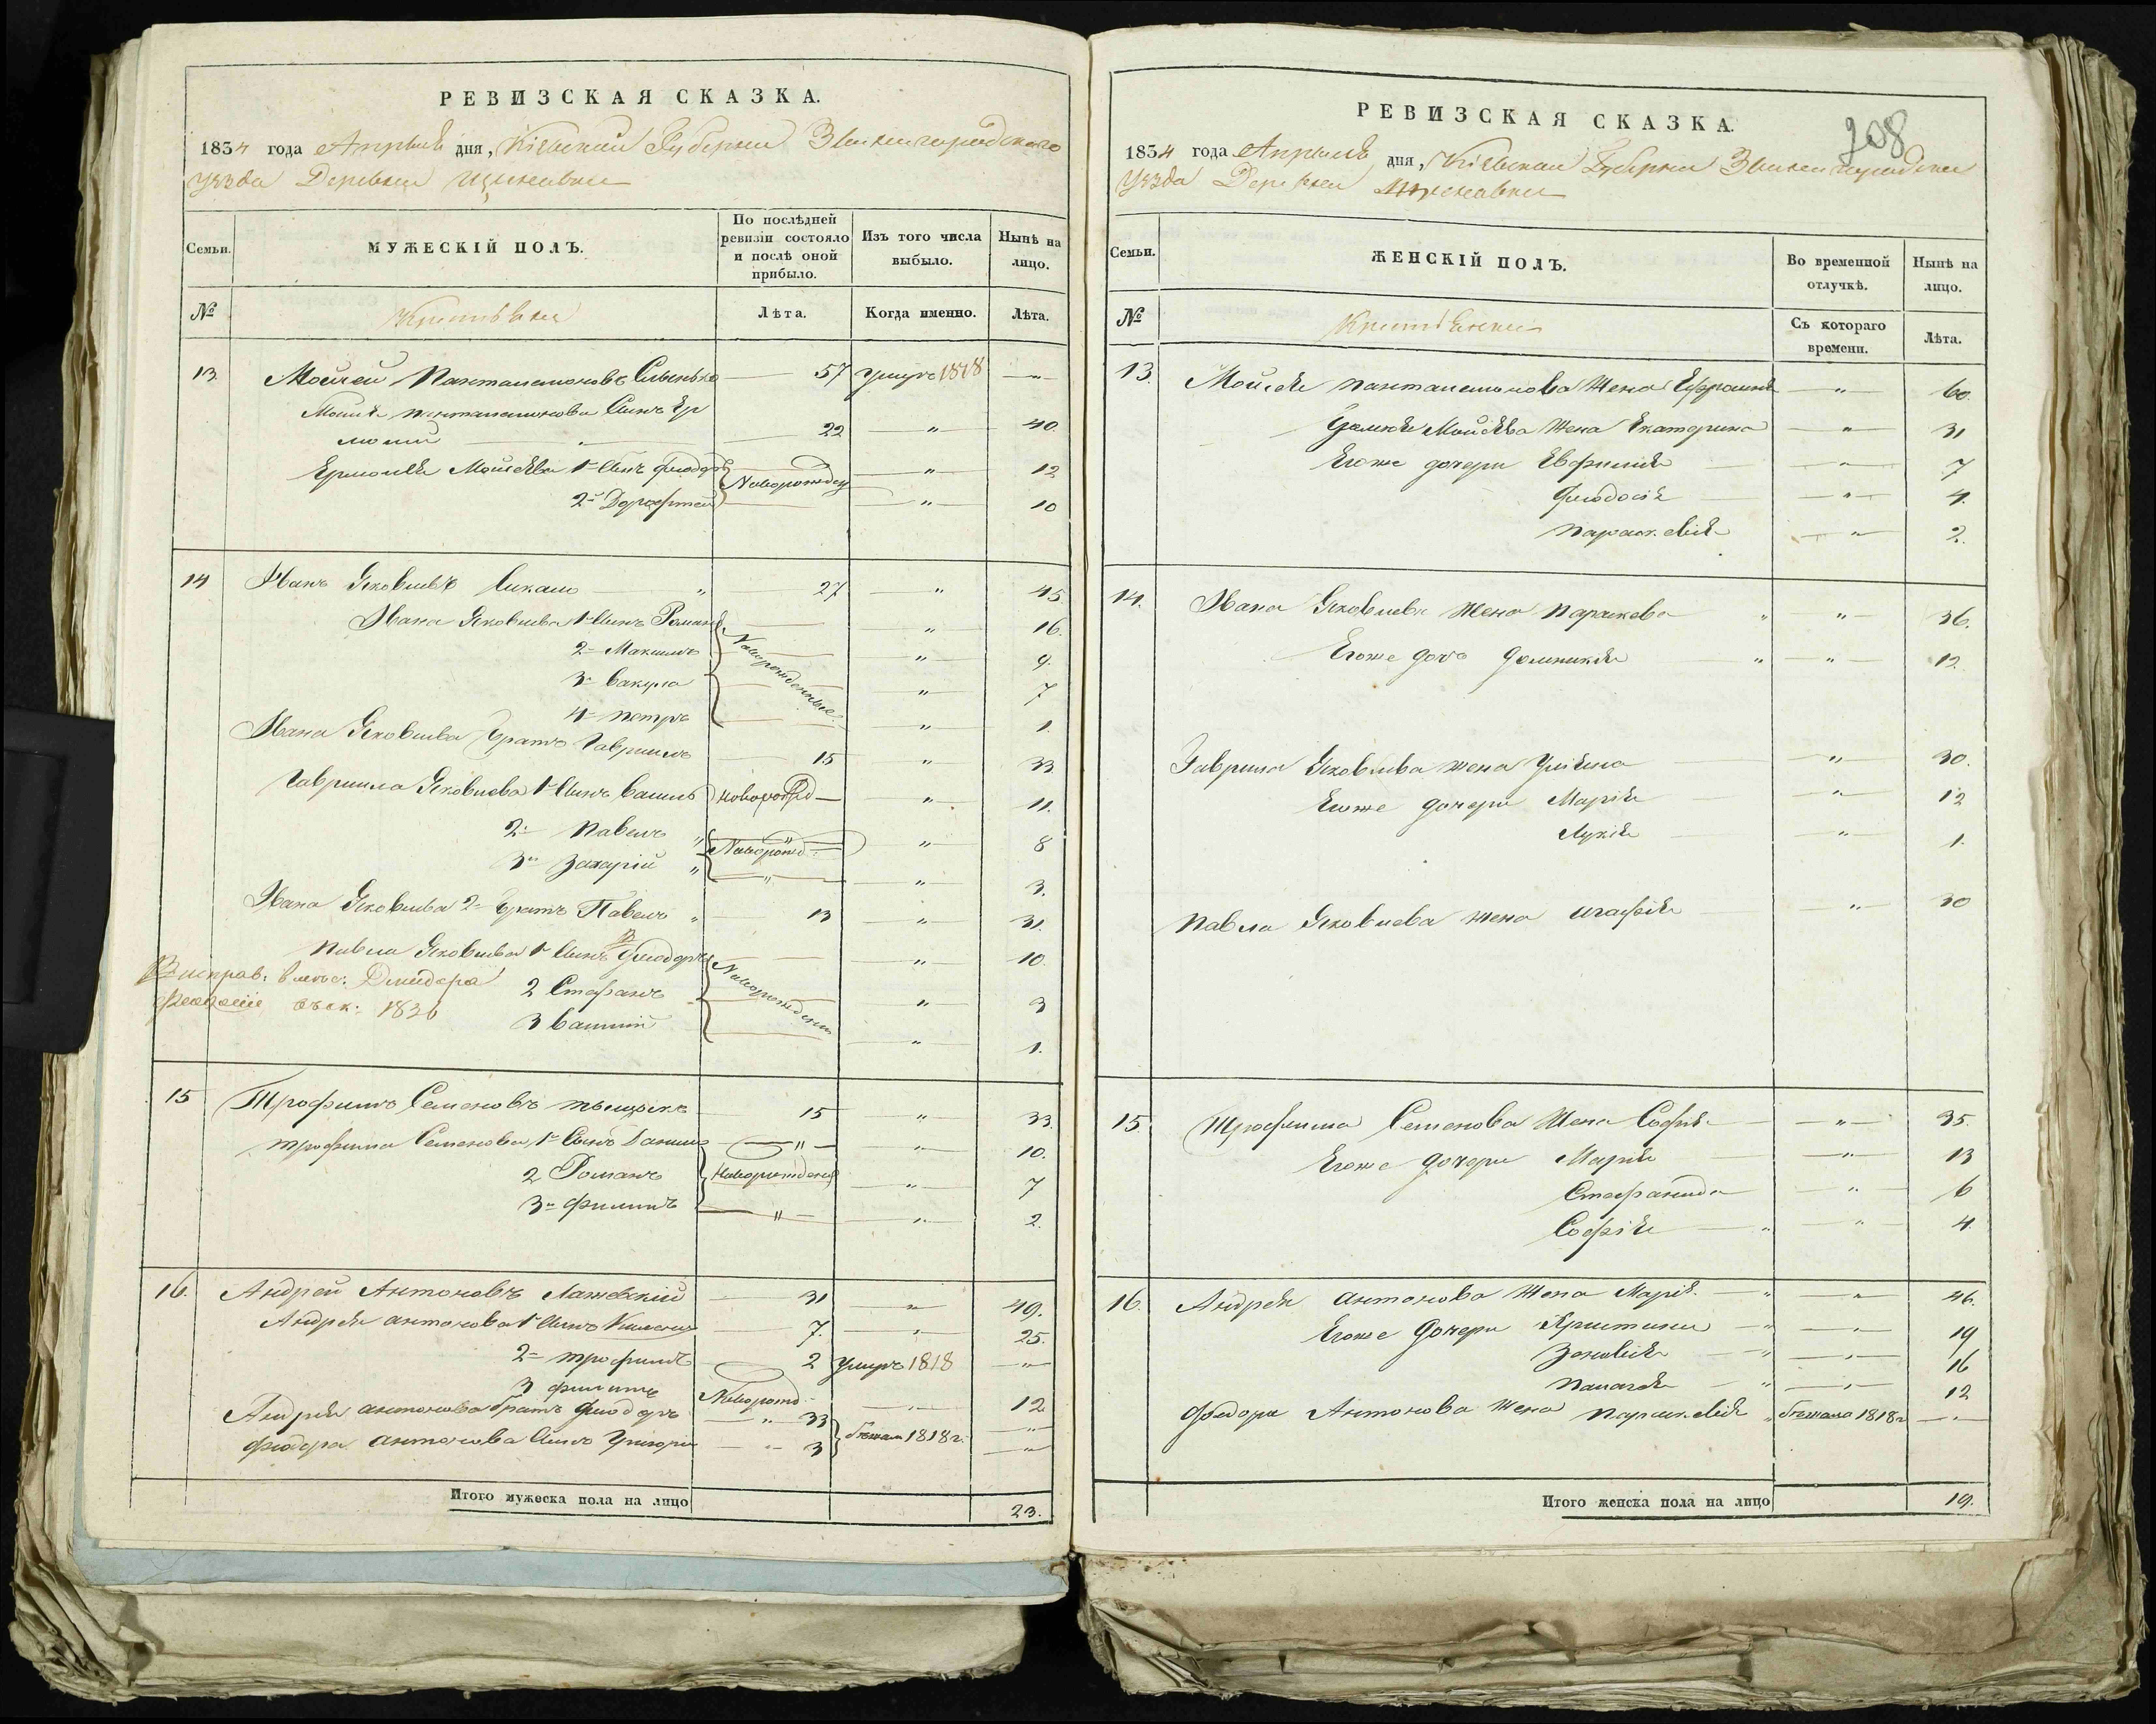 РЕВИЗСКАЯ СКАЗКА.
1834 года Апрѣля дня, Кіевской Губерніи Звенигородского
Уѣзда Деревни
Семьи.
МУЖЕСКІЙ ПОЛЪ.
По послѣдней ревизіи состояло и послѣ оной прибыло.
Изъ того числа выбыло.
Нынѣ на лицо.
№
Лѣта.
Когда именно.
Лѣта.
13. Мойсей Пантелемоновъ 57 умеръ 1818 —"—
Мойсея Пантелемонова Сынъ Ер
молай 22 " 40.
Ермолая Мойсѣева 1й Сынъ Феодоръ " 12
Новорожден
2й Дорофтей " 10
14 Иванъ Яковлевъ " 27 " 45
Ивана Яковлева 1й Сынъ Романъ " 16.
Новорожденные
2й Максимъ " 9.
3й Вакула " 7
4й Петръ " 1.
Ивана Яковлева братъ Гаврiилъ 15 " 33
Гаврiила Яковлева 1й Сынъ Василь новорожд " 11.
2й Павелъ " " 8
Новорожд
3й Захарій " " 3.
Ивана Яковлева 2й братъ Павелъ " 13 " 31.
Павла Яковлева 1й Сынъ Феодоръ " 10.
Новорожден
2 Стефанъ " 3
1836
3 Василий " 1.
15 Трофимъ Семеновъ 15 " 33.
Трофима Семенова 1й Сынъ Данило " " 10.
2 Романъ Новорожден " 7
3й Филипъ " " 2.
16. Андрей Антоновъ 31 " 49.
Андрея Антонова 1й Сынъ 7. " 25.
2й Трофимъ 2 умеръ 1818 "
3 Филипъ Новорожд " 12
Андрея Антонова братъ Феодоръ " 33 "
бѣжали 1818 г.
Феодора Антонова Сынъ Григорій " 3 "
Итого мужеска пола на лицо 23.
208
РЕВИЗСКАЯ СКАЗКА.
1834 года Апрѣля дня, Кіевской Губерніи
Уѣзда Деревни
Семьи.
ЖЕНСКІЙ ПОЛЪ.
Во временной отлучкѣ.
Нынѣ на лицо.
№
Съ котораго времени.
Лѣта.
13. Мойсея Пантелемонова Жена " 60.
Мойсѣева Жена Екатерина " 31
Егоже дочери Евфимія " 7
Феодосія " 4.
Параскевія " 2.
14. Ивана Яковлева Жена Параскева " " 36.
Егоже дочь Домникія " " 12.
Гаврила Яковлева жена Уліяна " 30.
Егоже дочери Марія " 12
Лукія " 1.
Павла Яковлева жена Агафія " 30
15. Трофима Семенова Жена Софія " 35.
Егоже дочери Марія " 13
Стефанида " 6
Софія " " 4.
16. Андрея Антонова Жена Марія " " 46.
Егоже дочери Христина " " 19
Зеновія " " 16
" " 12
Феодора Антонова Жена Параскевія " бѣжала 1818 г "
Итого женска пола на лицо 19.